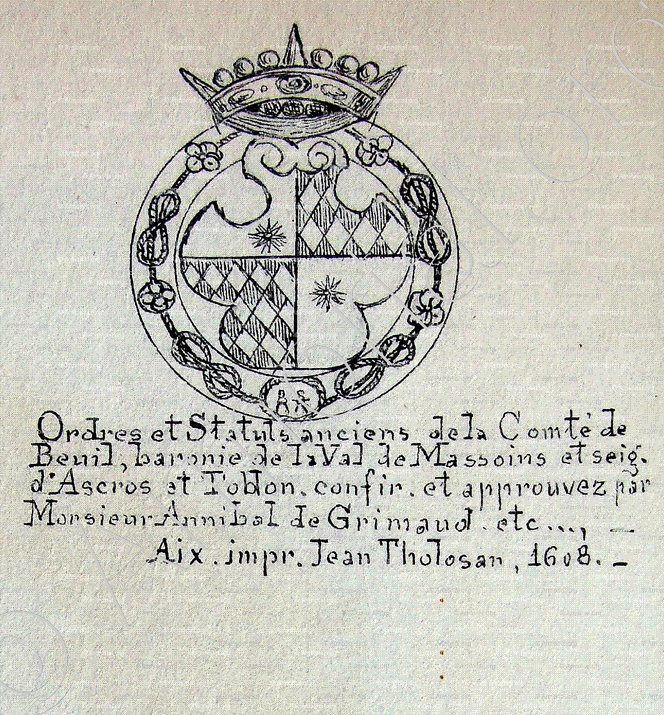 Ordres et Statuts anciens de la Comté de
Beuil, baronie de la Val de Massoins et seig.
d'Ascros et Toudon. confir. et approuvez par
Monsieur Annibal de Grimaud. etc..., —
Aix. impr. Jean Tholosan, 1608. —